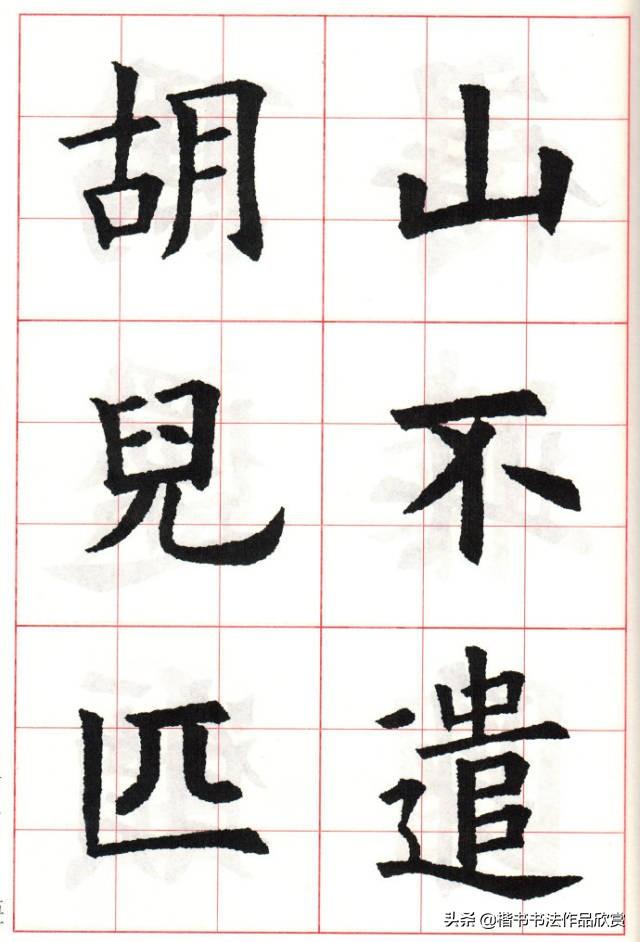 山不遣
胡兒匹
头条 @楷书书法作品欣赏